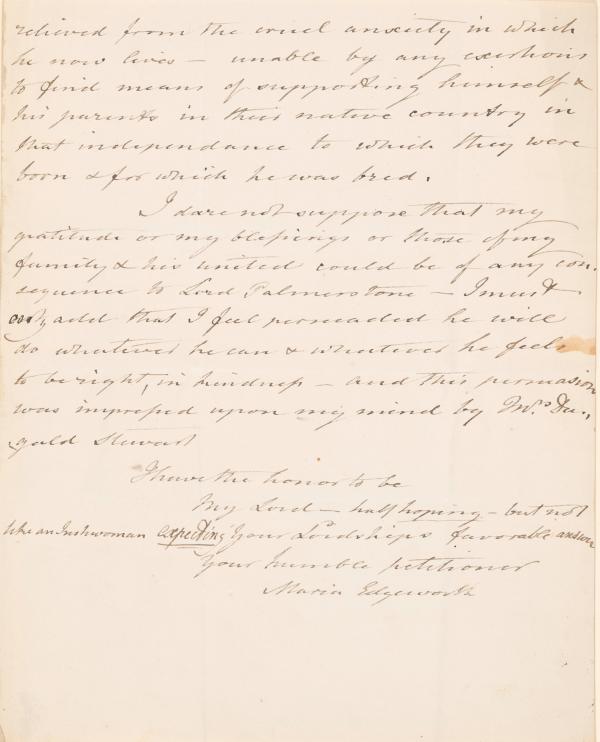 relieved from the cruel anxiety in which
he now lives — unable by any exertions
to find means of supporting himself &
his parents in their native country in
that independance to which they were
born & for which he was bred.
I dare not suppose that my
gratitude or my blessings or those of my
family & his united could be of any con-
sequence to Lord Palmerstone — I must
only add that I feel persuaded he will
do whatever he can & whatever he feels
to be right, in kindness — and this persuasion
was impressed upon my mind by Mrs. Du-
gald Stewart
I have the honor to be
My Lord — half hoping — but not
like an Irishwoman expecting Your Lordships favorable answer
Your humble petitioner
Maria Edgeworth